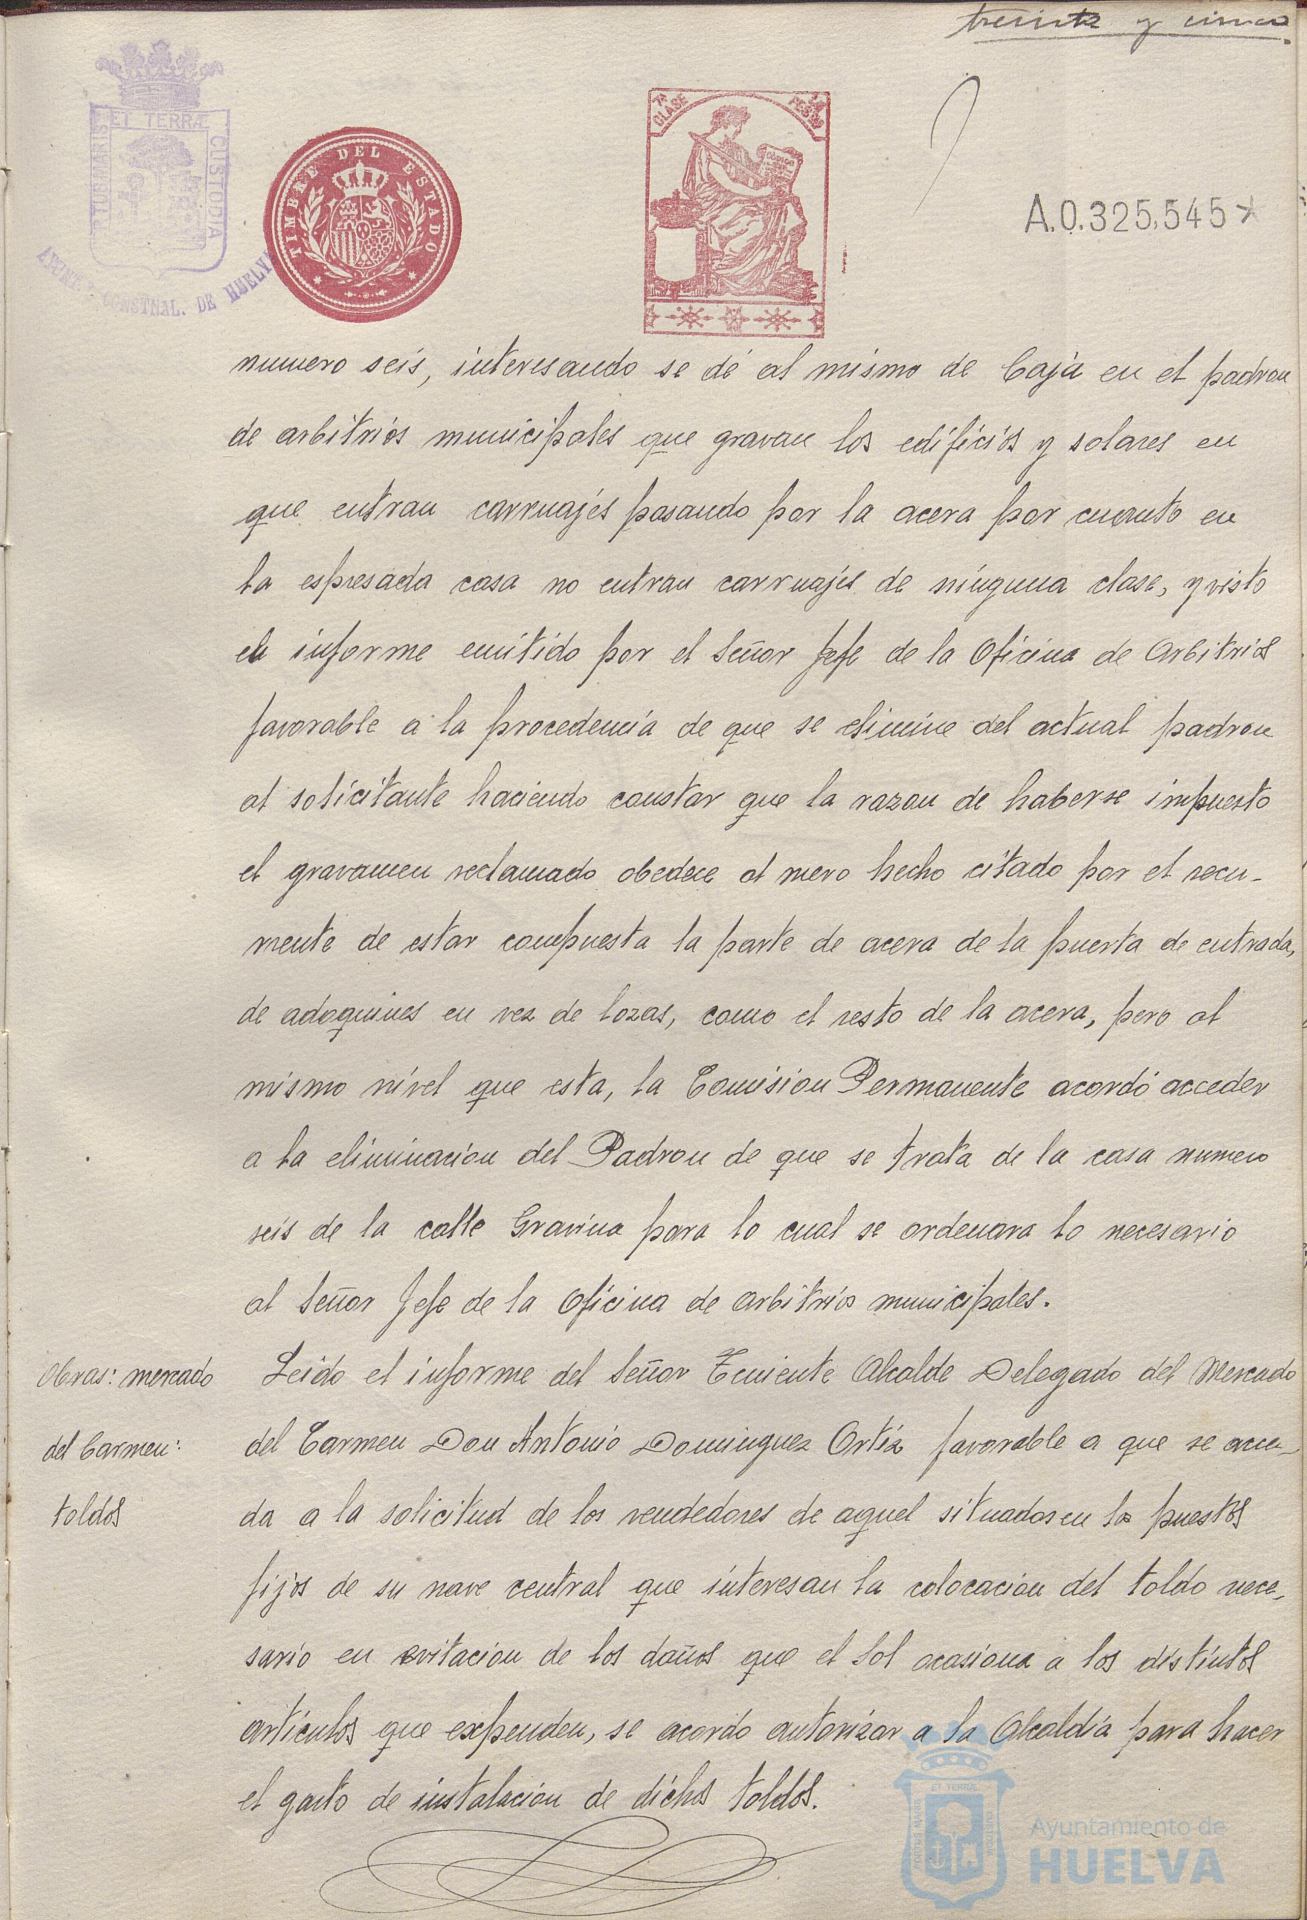 treinta y cinco.
PORTUS MARIS ET TERRÆ CUSTODIA
AYUNT.º CONSTNAL. DE HUELVA
TIMBRE DEL ESTADO
7ª CLASE
PESETAS
A.0.325,545
numero seis, interesando se dé al mismo de baja en el padron
de arbitrios municipales que gravan los edificios y solares en
que entran carruajes pasando por la acera por cuanto en
la espresada casa no entran carruajes de ninguna clase, y visto
el informe emitido por el Señor Jefe de la Oficina de Arbitrios
favorable a la procedencia de que se elimine del actual padron
al solicitante haciendo constar que la razon de haberse impuesto
el gravamen reclamado obedece al mero hecho citado por el recu-
rrente de estar compuesta la parte de acera de la puerta de entrada,
de adoquines en vez de lozas, como el resto de la acera, pero al
mismo nivel que esta, la Comision Permanente acordó acceder
a la eliminacion del Padron de que se trata de la casa numero
seis de la calle Gravina para lo cual se ordenara lo necesario
al Señor Jefe de la Oficina de arbitrios municipales.
Obras: mercado
del Carmen:
toldos
Leido el informe del Señor Teniente Alcalde Delegado del Mercado
del Carmen Don Antonio Dominguez Ortiz favorable a que se acce-
da a la solicitud de los vendedores de aquel situados en los puestos
fijos de su nave central que interesan la colocacion del toldo nece-
sario en evitacion de los daños que el Sol ocasiona a los distintos
articulos que expenden, se acordo autorizar a la Alcaldía para hacer
el gasto de instalacion de dichos toldos.
Ayuntamiento de
HUELVA